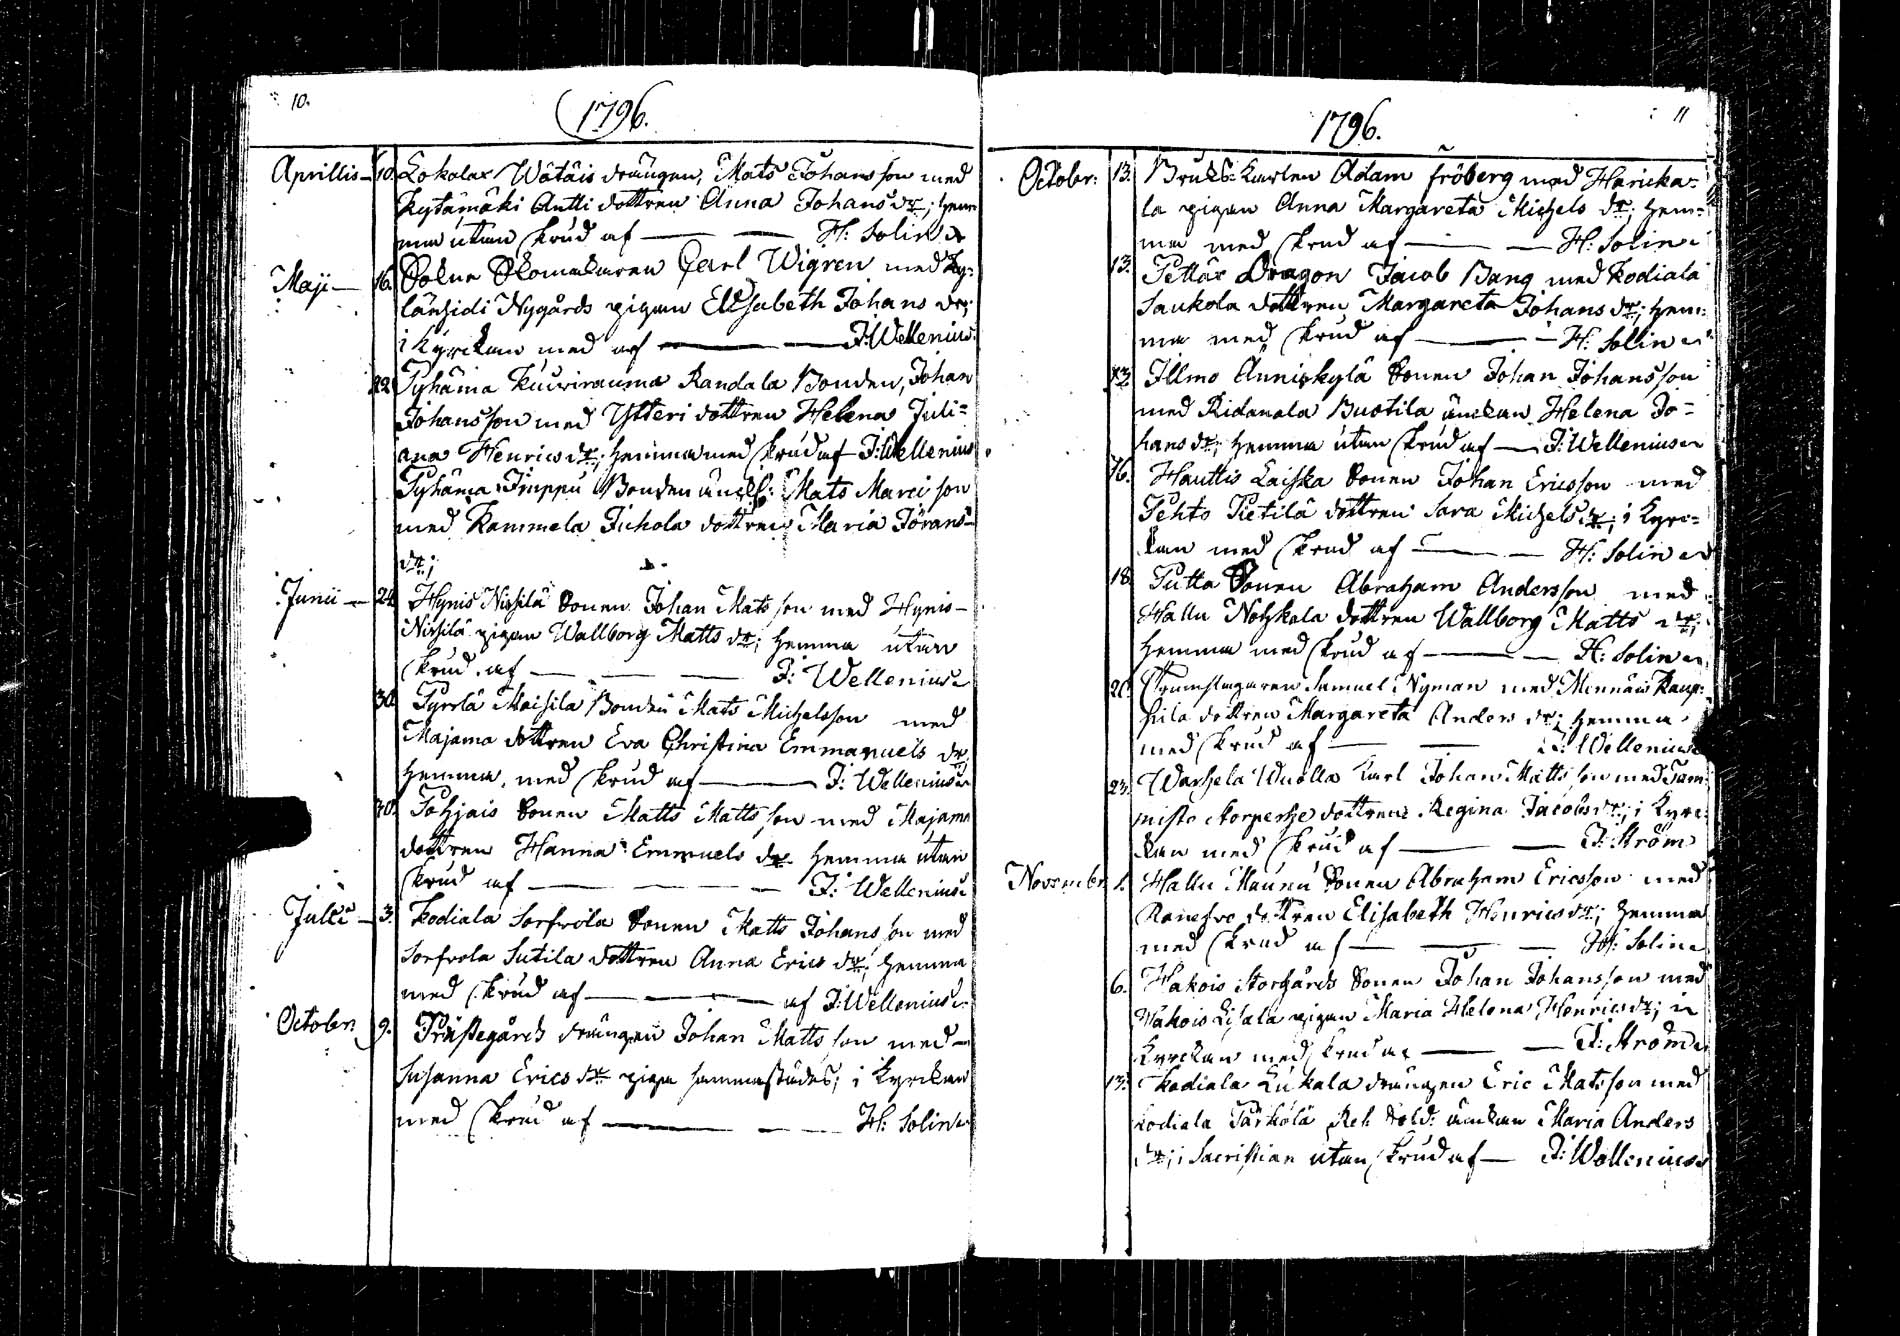 10.
1796.
Aprillis 10. Lokalax Wätäis drängen, Mats Johansson med
Kytämäki Antti dottren Anna Johans dr; hem=
ma utan skrud af — — H: Solin
Maji — 16. Sokne Skomakaren Carl Wigren med
länsidi Nygårds pigan Elisabeth Johans dr;
i Kyrckan med af — — J: Wellenius
22. Pyhäma Kuivirauma Randala Bonden, Johan
Johansson med Ytteri dottren Helena Juli=
ana Henrics dr; hemma med skrud af J: Wellenius
Pyhäma Jmppu Bonden änckl: Mats Marci son
med Rammela Jichola dottren Maria Jörans=
dr;
Junii — 24. Hynis Nissilä Sonen Johan Mats son med Hynis=
Nissilä pigan Wallborg Matts dr; hemma utan
skrud af — — — J: Wellenius
30. Pyrrlä Maisila Bonden Mats Michelsson med
Majama dottren Eva Christina Emmanuels dr,
hemma, med skrud af — J: Wellenius
30. Pohjais Sonen Matts Matts son med Majama
dottren Hanna Emmuels dr hemma utan
skrud af — — — J: Wellenius
Julii — 3. Kodiala Sorfvola Sonen Matts Johans son med
Sorfvola Sutila dottren Anna Erics dr; hemma
med skrud af — — af J: Wellenius
October 9. Prästegårds drängen Johan Matts son med
Susanna Erics dr piga sammastädes; i Kyrckan
med skrud af — — H: Solin
11
1796.
October: 13. Bruks-Karlen Adam Fröberg med Haricka=
la pigan Anna Margareta Michels dr; hem=
ma med skrud af — — H: Solin
13. Pettäx Dragon Jacob Bang med Kodiala
Saukola dottren Margareta Johans dr; hem=
ma med skrud af — — H: Solin
Jllmo Änniskylä Sonen Johan Johansson
med Ridanala Buotila änckan Helena Jo=
hans dr; hemma utan skrud af — J: Wellenius
16. Hauttis Laiska Sonen Johan Ericsson med
Pehto Pietilä dottren Sara Michels dr; i Kyrc=
kan med skrud af — — H: Solin
18. Putta Sonen Abraham Andersson med
Hallu Nohkola dottren Wallborg Matts dr;
hemma med skrud af — — H: Solin
Trumslagaren Samuel Nyman med Mennäis Kaup=
pila dottren Margareta Anders dr; hemma
med skrud af — — J: Wellenius
23. Warhela Wuolla Karl Johan Matts son med Tam=
misto dottren Regina Jacobs dr; i Kyrc=
kan med skrud af — — J: Ström
November 1. Hallu Maunu Sonen Abraham Ericsson med
dottren Elisabeth Henrics dr; hemma
med skrud af — — — H: Solin
6. Hakois Storgårds Sonen Johan Johansson med
Wakois Lisala pigan Maria Helena Henrics dr; i
Kyrckan med skrud af — — J: Ström
13. Kodiala Lukala drängen Eric Matsson med
Kodiala Tärkölä Ref. Sold: änckan Maria Anders
dr; i Sacristian utan skrud af — J: Wellenius